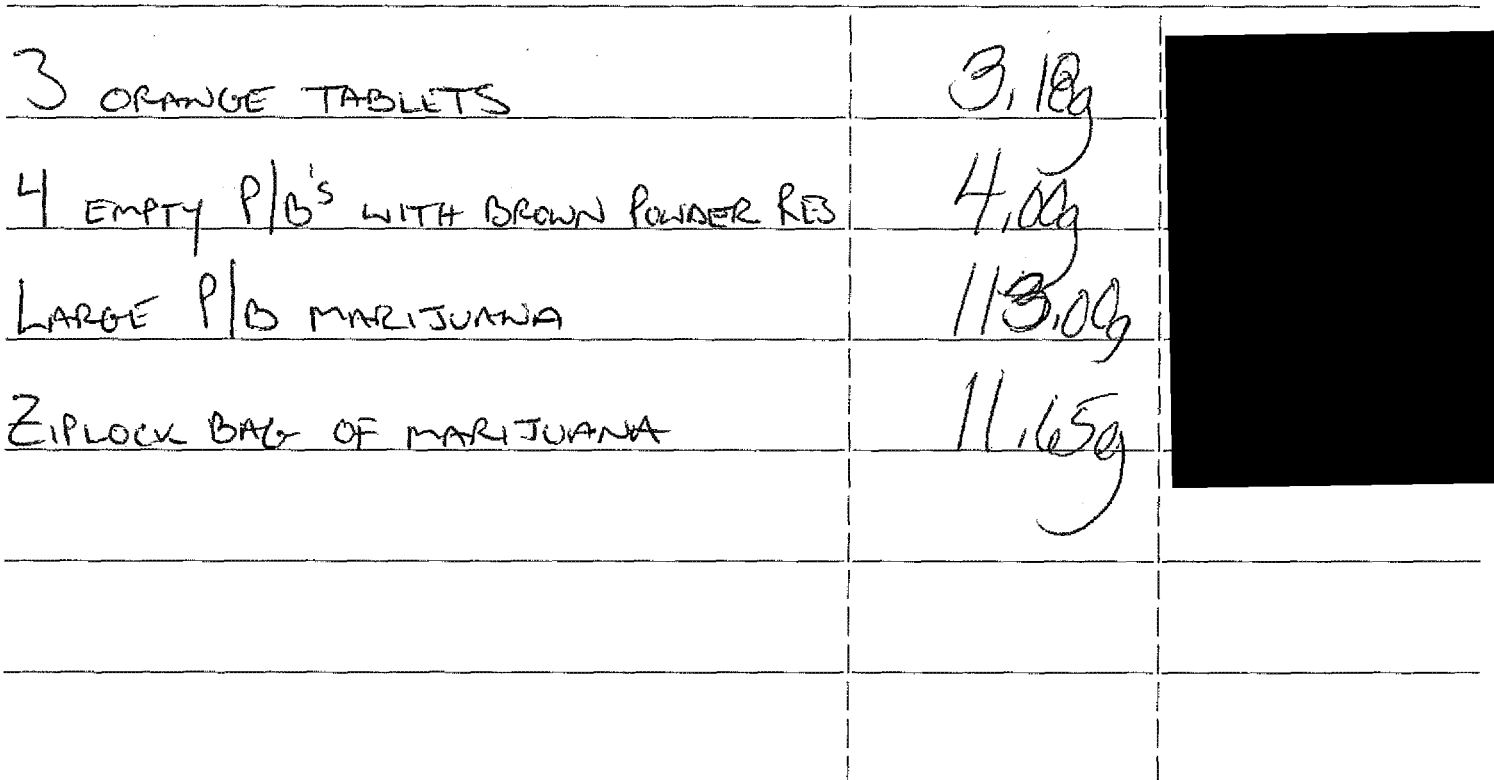 3 ORANGE TABLETS 3.18g
4 EMPTY P/B'S WITH BROWN POWDER RES 4.00g
LARGE P/B MARIJUANA 113.00g
ZIPLOCK BAG OF MARIJUANA 11.65g